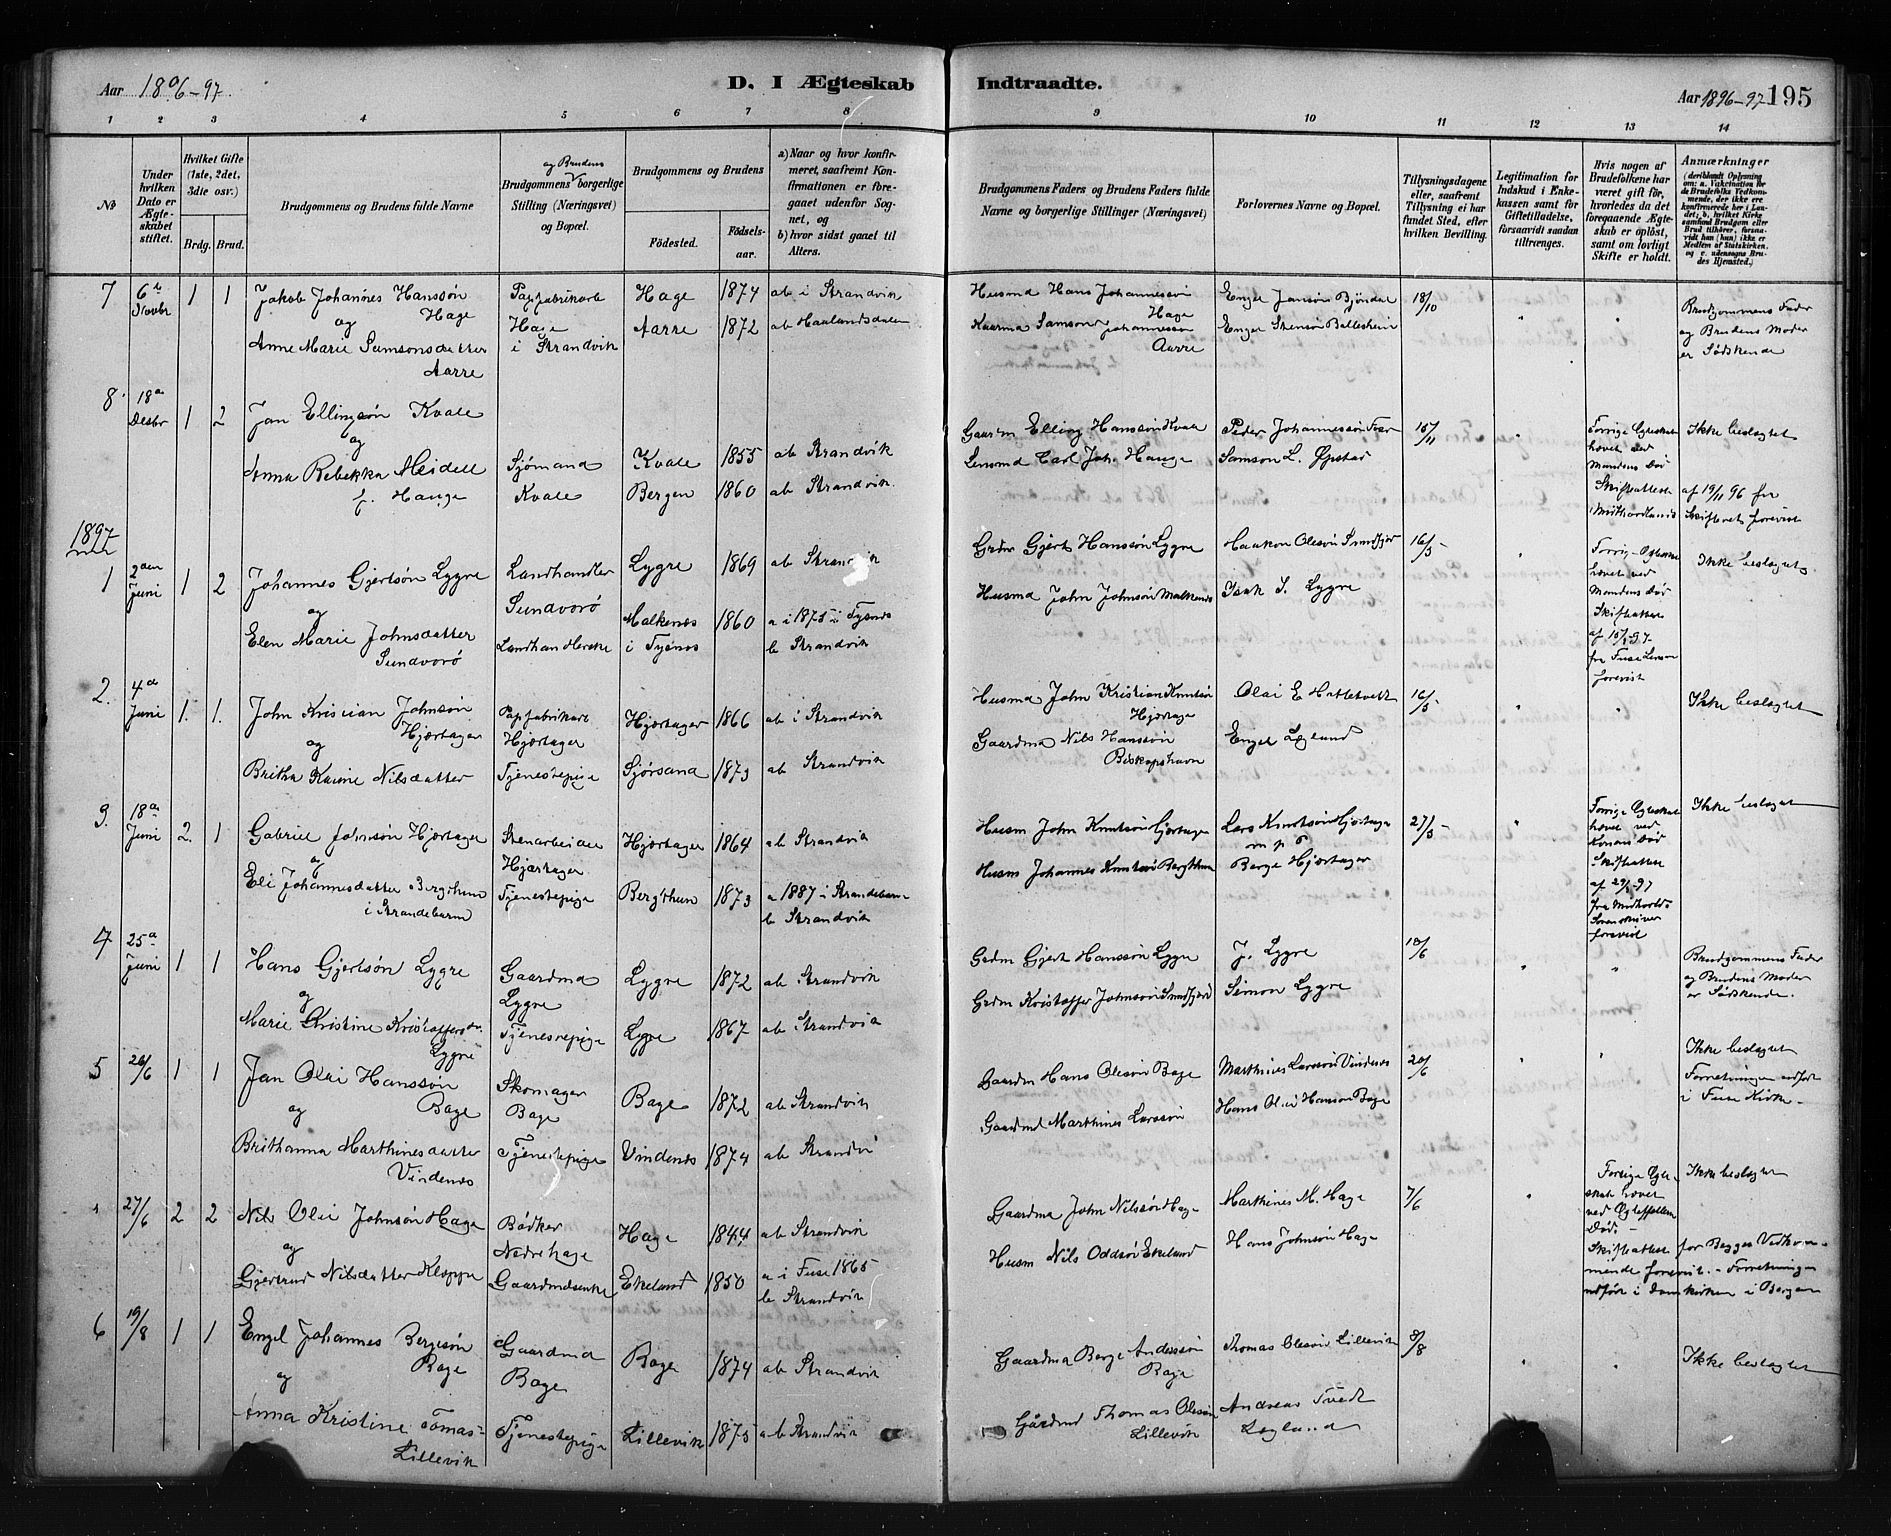 Aar 1896-97.
D. I Ægteskab
Indtraadte.
Aar 1896-97 195
1 2 3 4 5 6 7 8 9 10 11 12 13 14
No
Under hvilken Dato er Ægteskabet stiftet.
Hvilket Gifte (1ste, 2det, 3die osv.)
Brdg. Brud.
Brudgommens og Brudens fulde Navne
og Brudens
Brudgommens borgerlige Stilling (Næringsvei) og Bopæl.
Brudgommens og Brudens
Fødested. Fødselsaar.
a) Naar og hvor konfirmeret, saafremt Konfirmationen er foregaaet udenfor Sognet, og
b) hvor sidst gaaet til Alters.
Brudgommens Faders og Brudens Faders fulde Navne og borgerlige Stillinger (Næringsvei)
Forlovernes Navne og Bopæl.
Tillysningsdagene eller, saafremt Tillysning ei har fundet Sted, efter hvilken Bevilling.
Legitimation for Indskud i Enkekassen samt for Giftetilladelse, forsaavidt saadan tiltrænges.
Hvis nogen af Brudefolkene har været gift før, hvorledes da det foregaaende Ægteskab er opløst, samt om lovligt Skifte er holdt.
Anmærkninger
7 6te Novbr 1 1 Jakob Johannes Hanssøn Hage
og
Anne Marie Samsonsdatter Aarre
Papfabrikarb Hage i Strandvik
Hage 1874 ab i Strandvik
Aarre 1872 ab Haalandsdalen
Husmd Hans Johannessøn Hage
Kaarma Samson Johannessøn Aarre
Engel Jansøn Bjöndal
18/10
Brudgommens Fader og Brudens Moder er Sødskende
8 18de Desbr 1 2 Jan Ellingsøn Kvale
og
Anna Rebekka Meidell f. Hauge
Sjømand Kvale
Kvale 1855 ab Strandvik
Bergen 1860 ab Strandvik
Gaardm Elling Hanssøn Kvale
Lensmd Carl Joh. Hauge
Peder Johannessøn
Samson L. Øpstad
15/11
Forrige Egteskab hævet ved Mandens Død
Skifteattest af 19/11 96 fra Midthordlands Skifteret forevist
Ikke beslægtet
1897
1 2den Juni 1 2 Johannes Gjertsøn Lygre
og
Elen Marie Johnsdatter Sundvorø
Landhandler Sundvorø
Landhandlerske
Lygre 1869 ab Strandvik
Malkenes i Tysnes 1860 a i 1875 i Tysnes
b Strandvik
Grdm Gjert Hanssøn Lygre
Husmd John Johnsøn Malkenes
Haakon Olesøn
Isak S. Lygre
16/5
hævet ved Mandens Død Skifteattest
forevist
Ikke beslægtet
2. 4de Juni 1. 1. John Kristian Johnsøn Hjørtager
og
Britha Karine Nilsdatter
Papfabrikarb Hjørtager
Tjenestepige
Hjørtager 1866 ab i Strandvik
Sjørsand 1873 ab Strandvik
Husmd John Kristian Knutsøn Hjørtager
Gaardma Nils Hanssøn Biskopshavn
Olai E Hatletvedt
Engel Legland
16/5
Ikke beslægtet
3. 18de Juni 2. 1 Gabriel Johnsøn Hjørtager
og
Eli Johannesdatter Bergthun i Strandebarm
Stenarbeider Hjørtager
Tjenestepige
Hjørtager 1864 ab Strandvik
Bergthun 1873 a 1887 i Strandebarm
b Strandvik
Husm John Knutsøn Hjørtager
Husm Johannes Knutsøn Bergthun
Lars Knutsøn Hjørtager
m p P
Børge Hjørtager
27/5
Forrige Egteskab hævet ved Konens Død
Skifteattest
forevist
Ikke beslægtet
4 25de Juni 1 1 Hans Gjertsøn Lygre
og
Marie Christine Kristoffersdtr. Lygre
Gaardma Lygre
Tjenestepige
Lygre 1872 ab Strandvik
Lygre 1867 ab Strandvik
Grdm Gjert Hanssøn Lygre
Grdm Kristoffer Johnsøn
J. Lygre
Simon Lygre
Brudgommens Fader og Brudens Moder er Sødskende.
5 26/6 1 1 Jan Olai Hanssøn Bage
og
Brithanna Marthinesdatter Vindenes
Skomager Bage
Tjenestepige
Bage 1872 ab Strandvik
Vindenes 1874 ab Strandvik
Gaardm Hans Olesøn Bage
Gaardmd Marthines Larssøn
Marthines Larssøn Vindenes
Hans Olai Hanssøn Bage
20/6
Ikke beslægtet
Forretningen udført i Fuse Kirke.
27/6 2 2 Nils Olai Johnsøn Hage
og
Gjertrud Nilsdatter Kleppe
Bødker Nedrehage
Gaardmdsenke
Hage 1844 ab Strandvik
Ekeland 1850 a i Fuse 1865
b Strandvik
Gaardma John Nilssøn Hage
Husm Nils Oddsøn Ekeland
Marthines M. Hage
Hans Johnsøn Hage
7/6
Forrige Egteskab hævet ved Egtefællens Død
Skifteattest for Begges Vedkommende forevist. - Forretningen udført i Domkirken i Bergen
Ikke beslægtet
6 19/8 1 1 Engel Johannes Bergesøn Bage
og
Anna Kristine Tomas- Lillevik
Gaardma Bage
Tjenestepige
Bage 1874 ab Strandvik
Lillevik 1875 ab Strandvik
Gaardma Berge Anderssøn Bage
Gårdmd Thomas Olesøn Lillevik
Thomas Olesøn Lillevik
Andreas Tvedt Legland
8/8
Ikke beslægtet